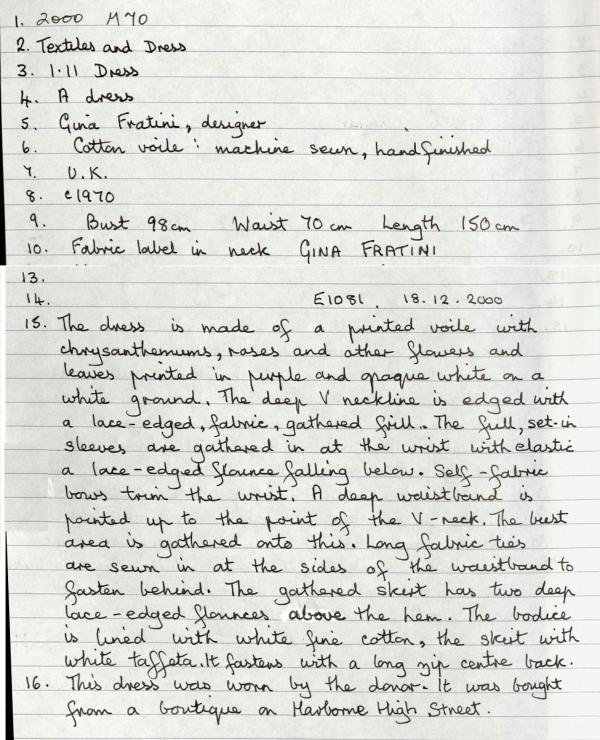 1. 2000 M70
2. Textiles and Dress
3. 1.11 Dress
4. A dress
5. Gina Fratini, designer
6. Cotton voile : machine sewn, hand finished
7. U.K.
8. c1970
9. Bust 98cm Waist 70 cm Length 150 cm
10. Fabric label in neck GINA FRATINI
13.
14. E1081 18.12.2000
15. The dress is made of a printed voile with
chrysanthemums, roses and other flowers and
leaves printed in purple and opaque white on a
white ground. The deep V neckline is edged with
a lace-edged, fabric, gathered frill. The full, set-in
sleeves are gathered in at the wrist with elastic
a lace-edged flounce falling below. Self-fabric
bows trim the wrist. A deep waistband is
pointed up to the point of the V-neck. The bust
area is gathered onto this. Long fabric ties
are sewn in at the sides of the waistband to
fasten behind. The gathered skirt has two deep
lace-edged flounces above the hem. The bodice
is lined with white fine cotton, the skirt with
white taffeta. It fastens with a long zip centre back.
16. This dress was worn by the donor. It was bought
from a boutique on Harborne High Street.